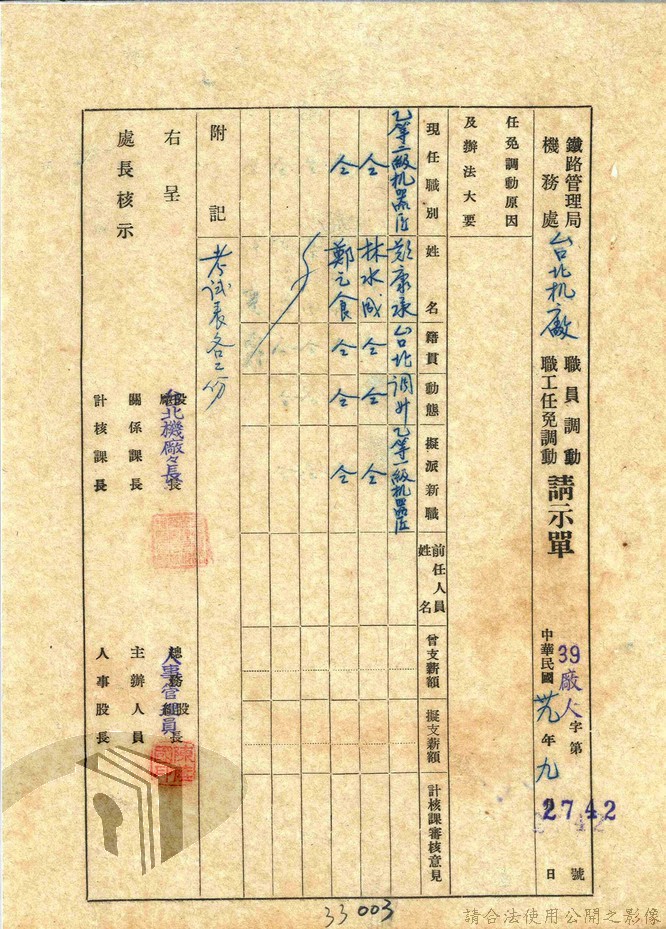 鐵路管理局
機務處 台北机廠
職員調動
職工任免調動
請示單
39廠人字第2742號
中華民國卅九年九月 日
任免調動原因
及辦法大要
現任職別 姓名 籍貫 動態 擬派新職 前任人員姓名 曾支薪額 擬支薪額 計核課審核意見
乙等二級机器匠 康 台北 調升 乙等一級机器匠
仝 林水成 仝 仝 仝
仝 鄭 食 仝 仝 仝
附記 考試表各二份
右呈
處長核示
台北機廠廠長
關係課長
計核課長
總務股長
人事管理員
主辦人員
人事股長
33 003
請合法使用公開之影像